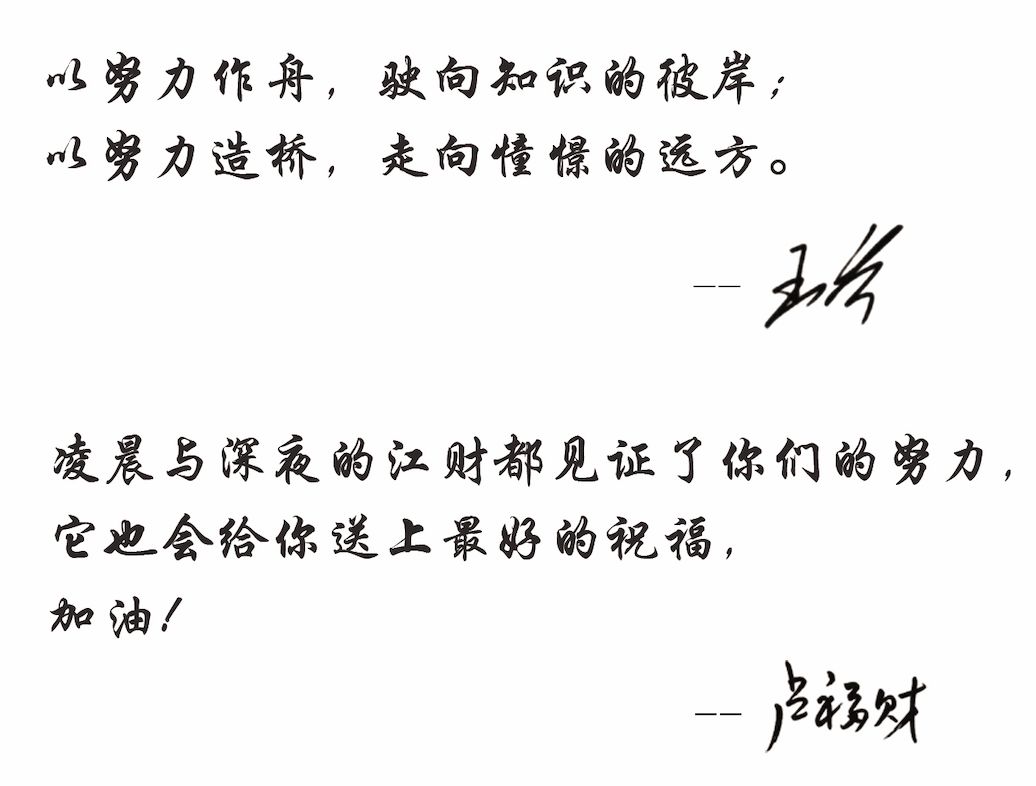 以努力作舟，驶向知识的彼岸；
以努力造桥，走向憧憬的远方。
--
凌晨与深夜的江财都见证了你们的努力，
它也会给你送上最好的祝福，
加油！
-- 卢福财